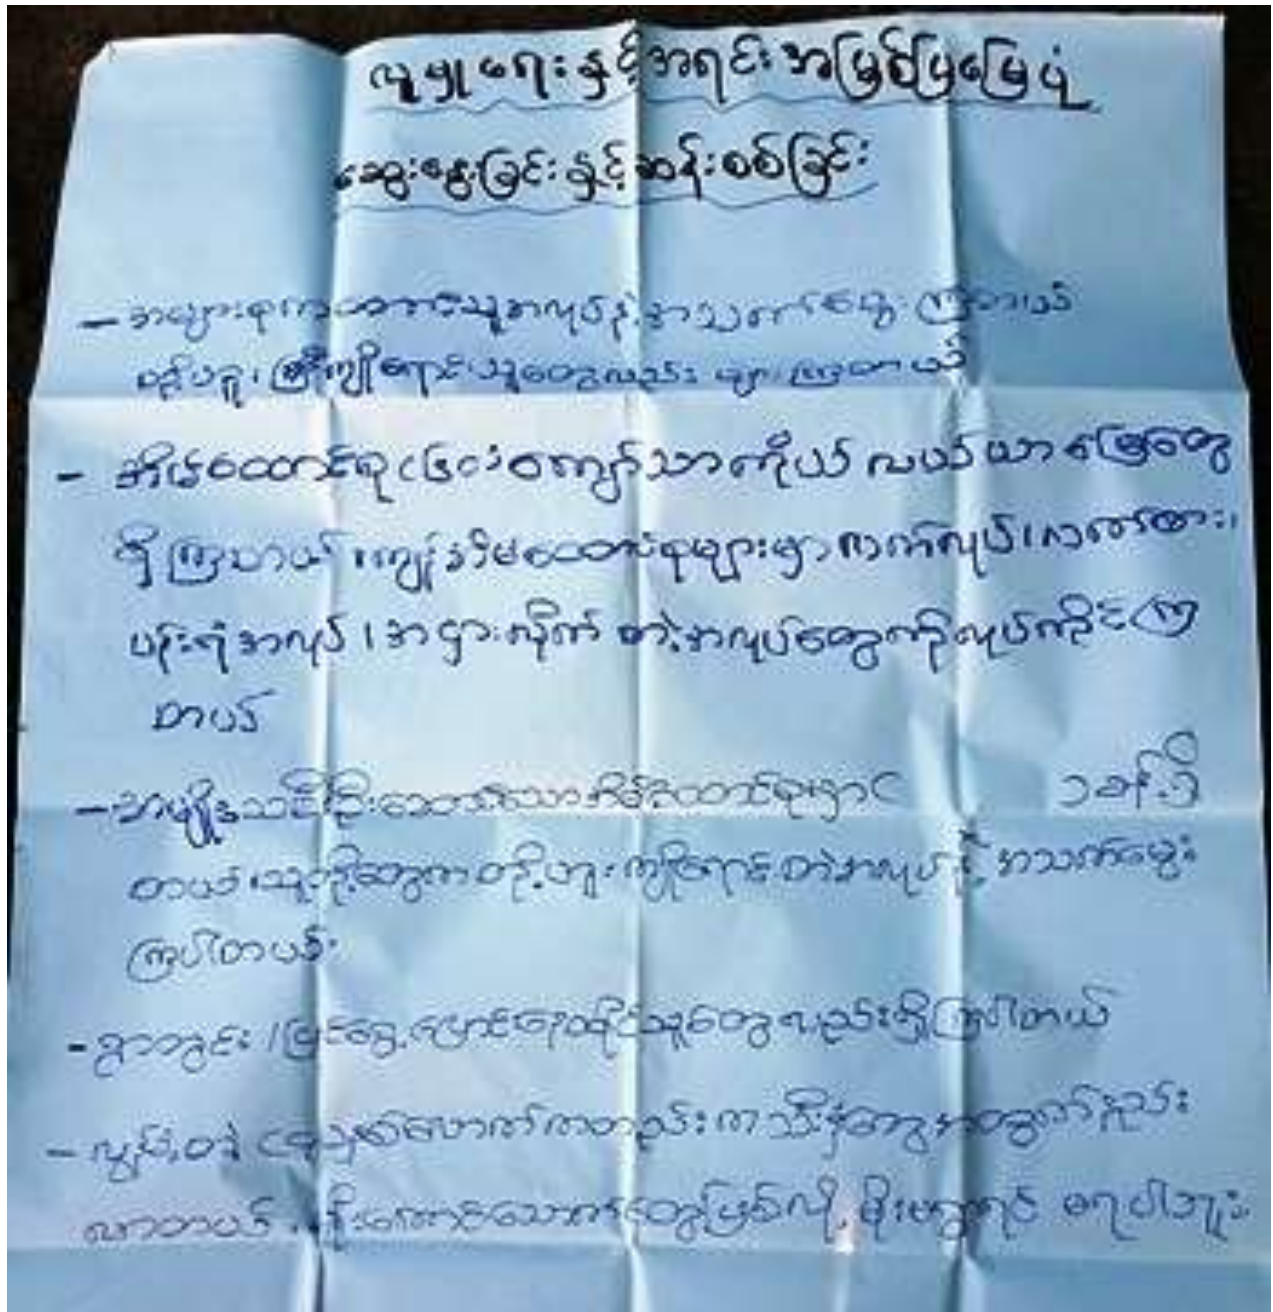 လူမှုရေးနှင့်အရင်းအမြစ်ပြမြေပုံ
ဆွေးနွေးခြင်းနှင့်ဆန်းစစ်ခြင်း
- အများစုကတောင်သူအလုပ်နဲ့အသက်မွေးကြတယ်
ကြီးကျိုရောင်းသူတွေလည်းများကြတယ်
- အိမ်ထောင်စု ၆၀ ကျော်သာကိုယ်ပိုင်လယ်ယာမြေတွေ
ရှိကြတယ်၊ ကျန်အိမ်ထောင်စုများမှာ လက်လုပ်၊ လက်စား၊
ပန်းရံအလုပ်၊ အငှားလိုက်တဲ့အလုပ်တွေကိုလုပ်ကိုင်ကြ
တယ်
- အမျိုးသမီးဦးဆောင်သောအိမ်ထောင်စု ရှိ
တယ်၊ သူတို့တွေက ကျိုရောင်းတဲ့အလုပ်နဲ့ အသက်မွေး
ကြပါတယ်
- ရွာတွင်း/ပြင်ရွှေ့ပြောင်းနေထိုင်သူတွေလည်းရှိကြပါတယ်
- လွန်ခဲ့တဲ့ နှစ်လောက်ကတည်းက သီးနှံတွေအထွက်နည်း
လာတယ်၊ မိုးကောင်းသောက်တွေဖြစ်လို့ မိုးမရွာရင် မရပါဘူး